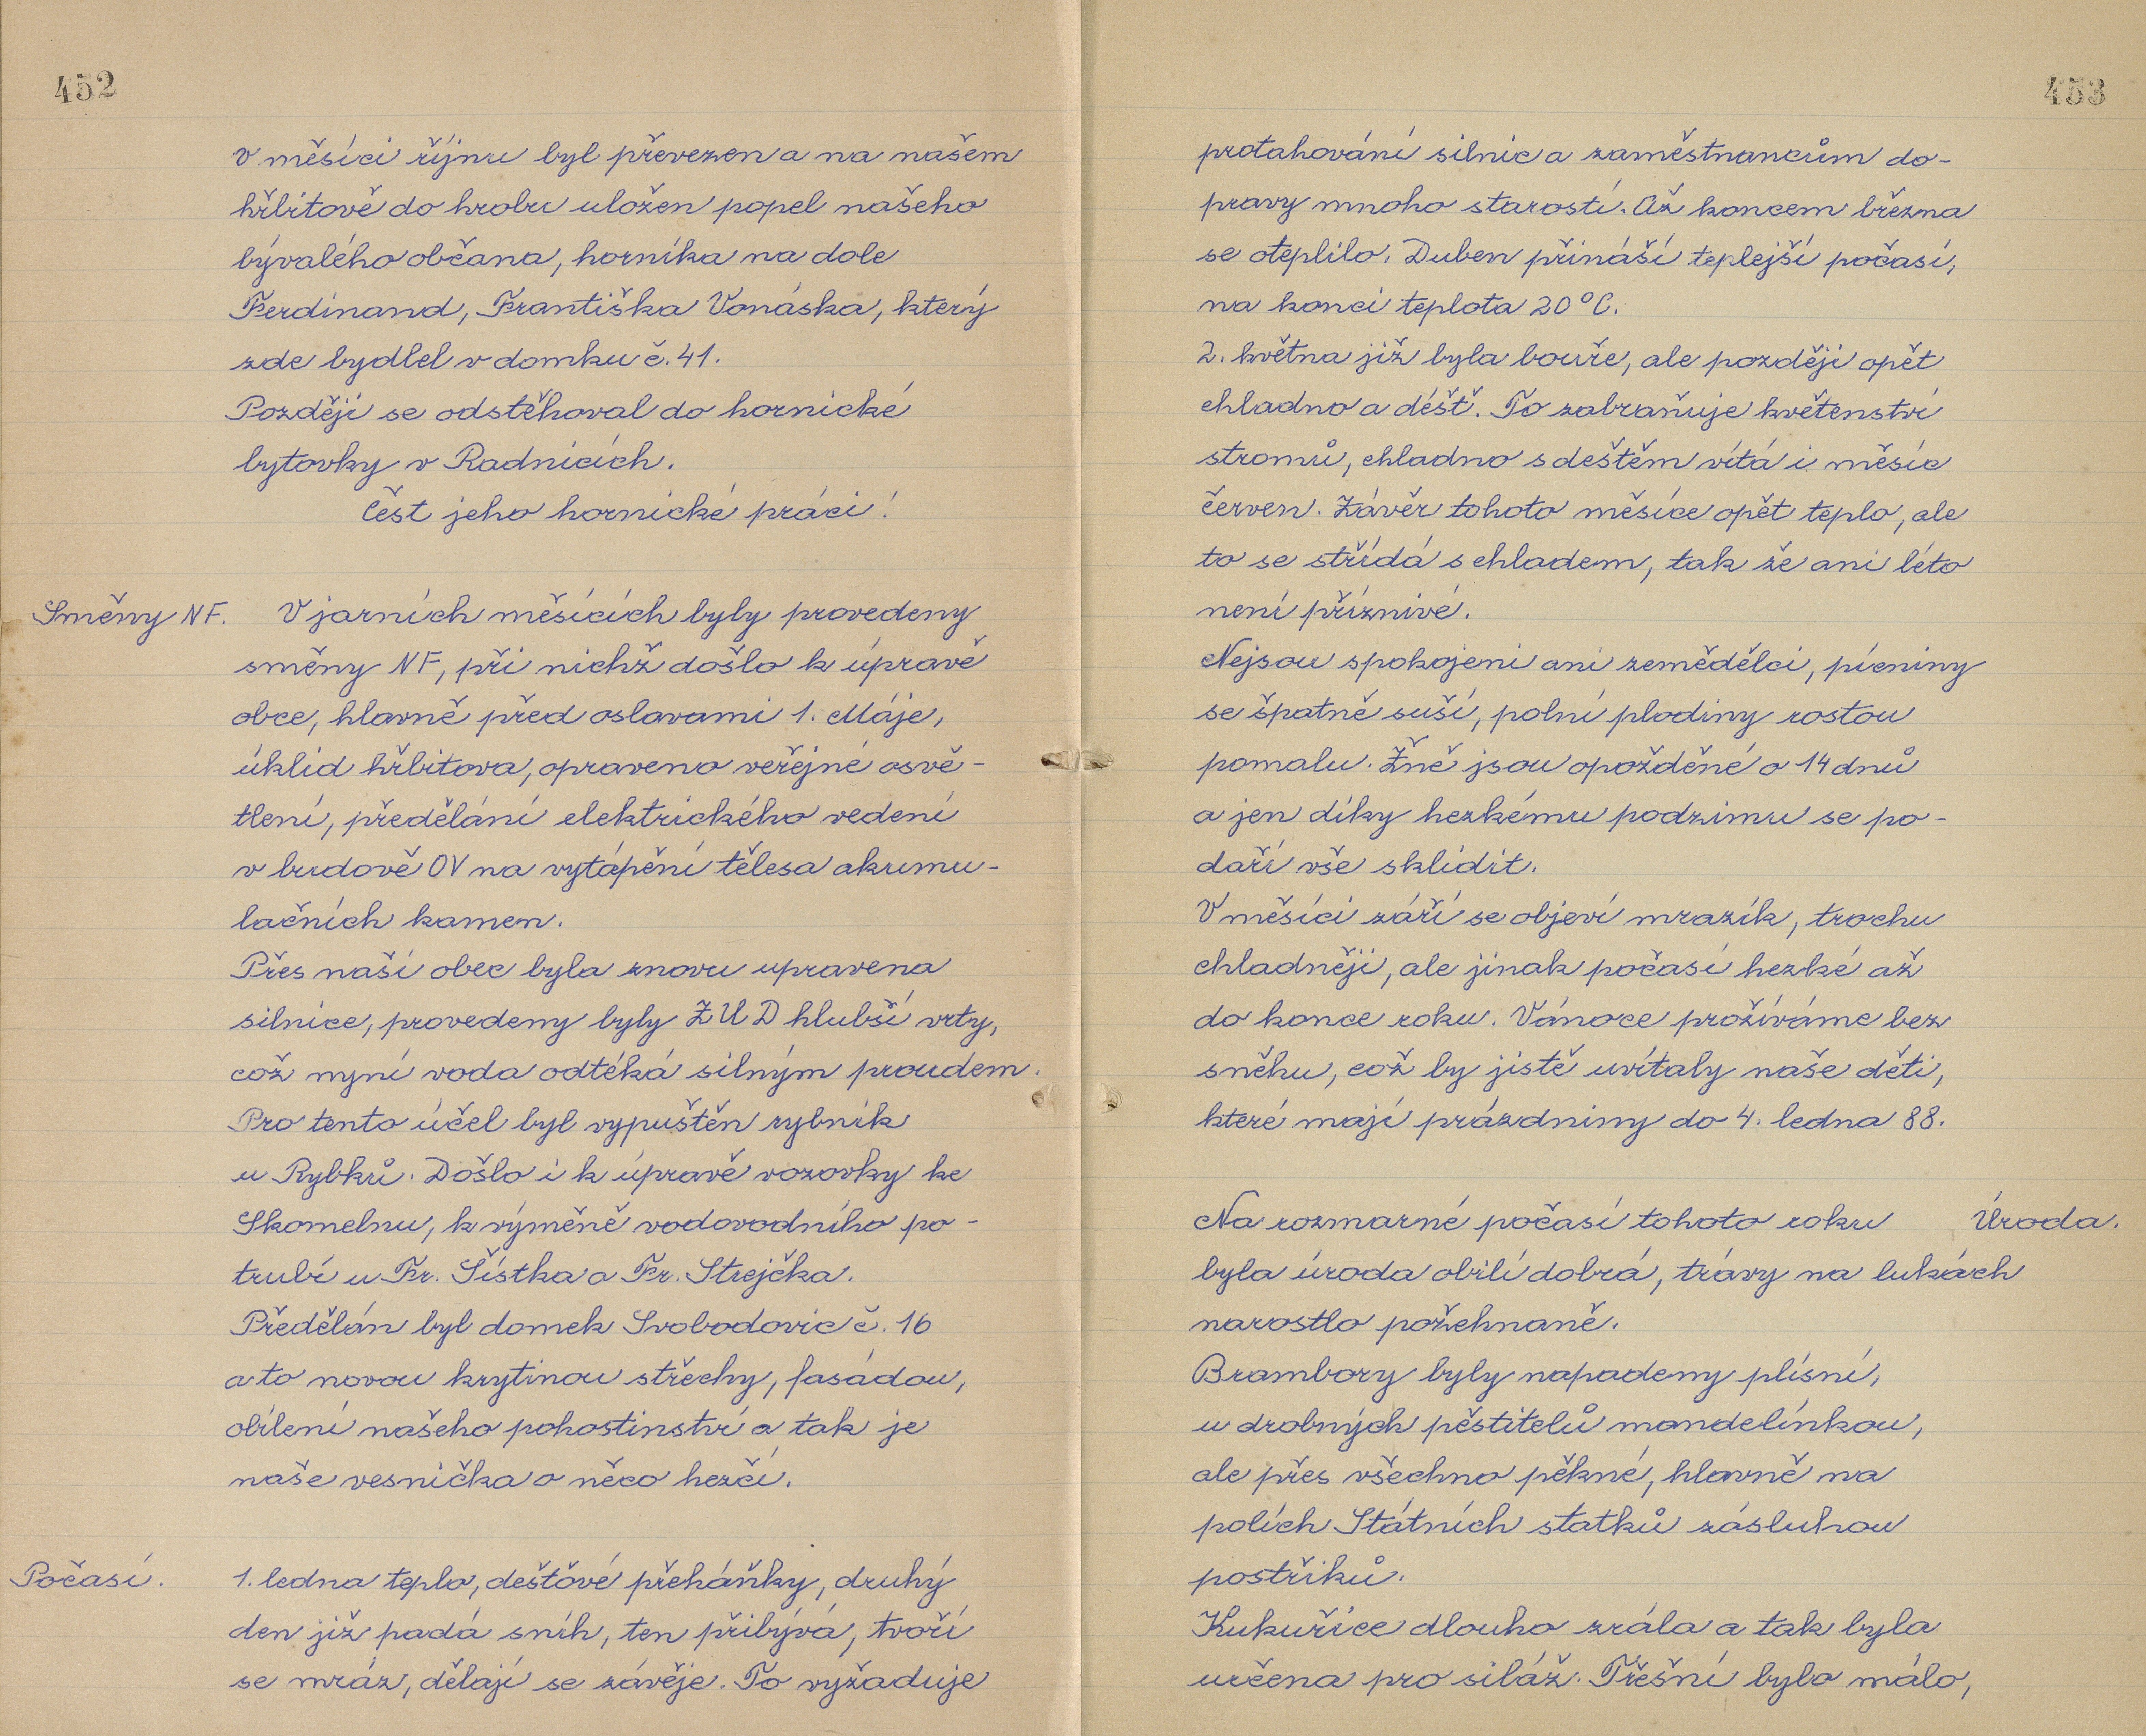 452
v měsíci říjnu byl převezen a na našem
hřbitově do hrobu uložen popel našeho
bývalého občana, horníka na dole
Ferdinand, Františka Vonáska, který
zde bydlel v domku č. 41.
Později se odstěhoval do hornické
bytovky v Radnicích.
Čest jeho hornické práci!
Směny NF. V jarních měsících byly provedeny
směny NF, při nichž došlo k úpravě
obce, hlavně před oslavami 1. Máje,
úklid hřbitova, opraveno veřejné osvě-
tlení, předělání elektrického vedení
v budově OV na vytápění tělesa akumu-
lačních kamen.
Přes naší obec byla znovu upravena
silnice, provedeny byly ZUD hlubší vrty,
což nyní voda odtéká silným proudem.
Pro tento účel byl vypuštěn rybník
u Rybků. Došlo i k úpravě vozovky ke
Skomelnu, k výměně vodovodního po-
trubí u Fr. Šístka a Fr. Strejčka.
Předělán byl domek Svobodovic č. 16
a to novou krytinou střechy, fasádou,
obílení našeho pohostinství a tak je
naše vesnička o něco hezčí.
Počasí. 1. ledna teplo, dešťové přeháňky, druhý
den již padá sníh, ten přibývá, tvoří
se mráz, dělají se závěje. To vyžaduje
453
protahování silnic a zaměstnancům do-
pravy mnoho starostí. Až koncem března
se oteplilo. Duben přináší teplejší počasí,
na konci teplota 20°C.
2. května již byla bouře, ale později opět
chladno a déšť. To zabraňuje květenství
stromů, chladno s deštěm vítá i měsíc
červen. Závěr tohoto měsíce opět teplo, ale
to se střídá s chladem, tak že ani léto
není příznivé.
Nejsou spokojeni ani zemědělci, pícniny
se špatně suší, polní plodiny rostou
pomalu. Žně jsou opožděné o 14 dnů
a jen díky hezkému podzimu se po-
daří vše sklidit.
V měsíci září se objeví mrazík, trochu
chladněji, ale jinak počasí hezké až
do konce roku. Vánoce prožíváme bez
sněhu, což by jistě uvítaly naše děti,
které mají prázdniny do 4. ledna 88.
Na rozmarné počasí tohoto roku Úroda.
byla úroda obilí dobrá, trávy na lukách
narostlo požehnaně.
Brambory byly napadeny plísní,
u drobných pěstitelů mandelínkou,
ale přes všechno pěkné, hlavně na
polích Státních statků zásluhou
postřiků.
Kukuřice dlouho zrála a tak byla
určena pro siláž. Třešní bylo málo,